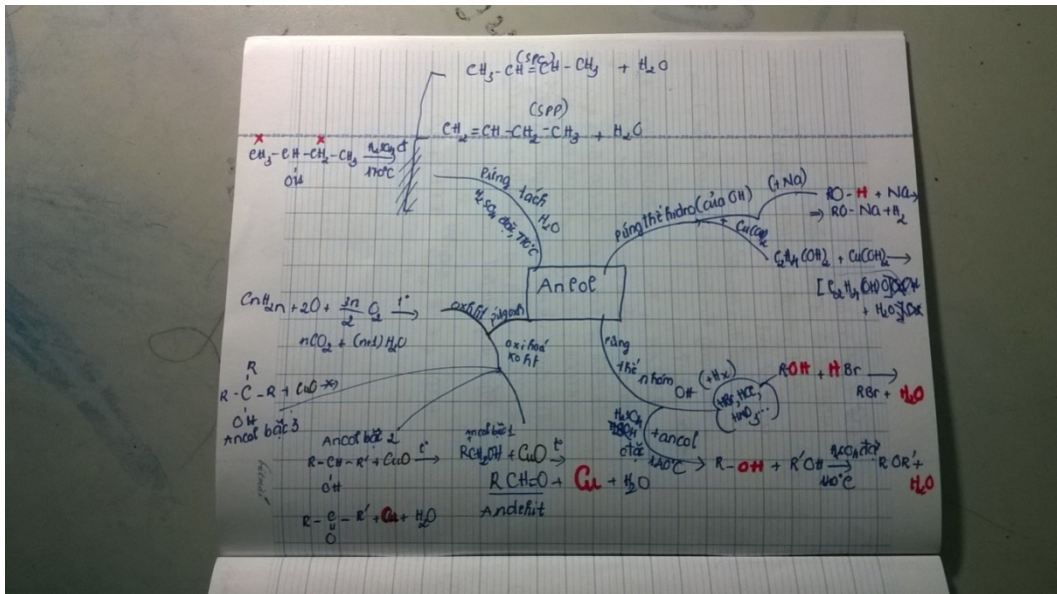 (SPC)
CH3-CH=CH-CH3 + H2O
(SPP)
CH2=CH-CH2-CH3 + H2O
CH3-CH-CH2-CH3 H2SO4 đ
OH 170°C
Pứng tách H2O
H2SO4 đặc, 170°C
Ancol
Pứng thế hidro (của OH)
(+Na)
RO-H + Na →
⇒ RO-Na + H2
+ Cu(OH)2
C2H4(OH)2 + Cu(OH)2 →
+ H2O
CnH2n+2O + 3n/2 O2 t° →
nCO2 + (n+1) H2O
oxh ht
pứng oxh
oxi hoá
ko ht
R
R-C-R + CuO
OH
Ancol bậc 3
Ancol bậc 2
R-CH-R' + CuO t° →
OH
R-C-R' + Cu + H2O
O
Ancol bậc 1
RCH2OH + CuO t° →
RCH=O + Cu + H2O
Andehit
pứng
thế nhóm OH
(+Hx)
HBr, HCl,
HNO3...
ROH + HBr →
RBr + H2O
H2SO4
đặc
140°C
+ancol
R-OH + R'OH H2SO4 đặc →
140°C
ROR' +
H2O